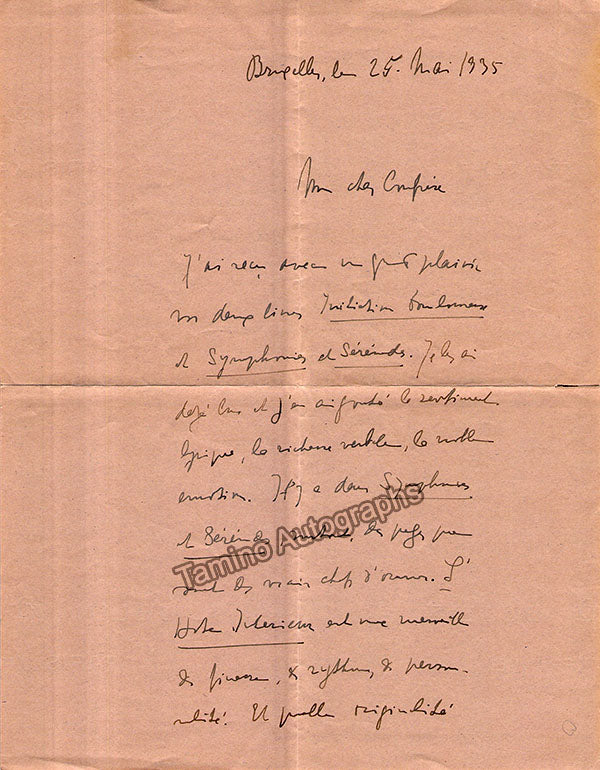 Bruxelles, le 25. Mai 1935
Mon cher Confrère
J'ai reçu avec un grand plaisir
vos deux livres Initiation
et Symphonies et Sérénités. Je les ai
déjà lus et j'en ai goûté le sentiment
lyrique, la richesse verbale, la noble
émotion. Il y a dans Symphonies
et Sérénités surtout, des pages qui
sont des vrais chefs d'oeuvre. L'
Hôte Intérieur est une merveille
de finesse, de rythme, de person-
nalité. Et quelle originalité
Tamino Autographs